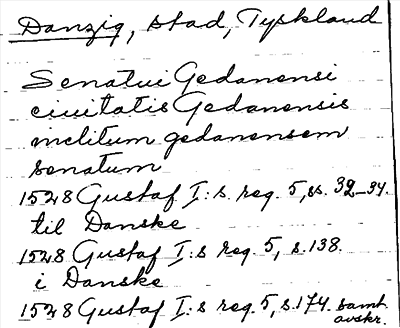 Danzig, stad, Tyskland
Senatui Gedanensi
ciuitatis Gedanensis
inclitum gedanensem
senatum
1528 Gustaf I:s reg. 5, ss. 32-34.
til Danske
1528 Gustaf I:s reg. 5, s. 138.
i Danske
1528 Gustaf I:s reg. 5, s. 174. samt
avskr.